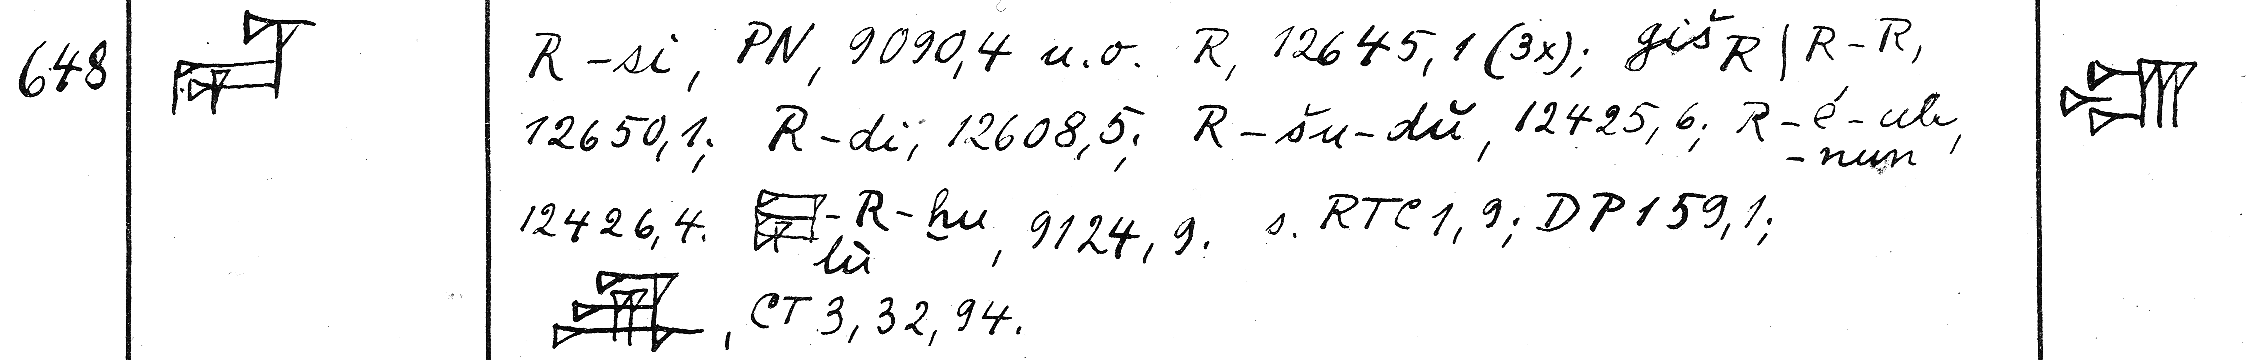 648 R-si, PN, 9090,4 u.o. R, 12645,1 (3x); giš R | R-R,
12650,1; R-di, 12608,5; R-šu-dŭ, 12425,6; R-é-ub,
-nun
12426,4. -R-ḫu, 9124,9. s. RTC 1,9; DP 159,1;
lù
, CT 3,32,94.